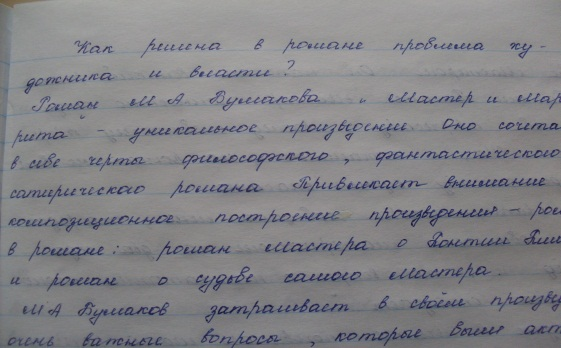 Как решена в романе проблема ху-
дожника и власти?
Роман М А Булгакова „ Мастер и Мар
рита - уникальное произведение Оно сочета
в себе черты философского, фантастического
сатирического романа Привлекает внимание
композиционное построение произведения - ром
в романе: роман Мастера о Понтии Пил
и роман о судьбе самого Мастера.
М А Булгаков затрагивает в своём произве
очень важные вопросы, которые были акт